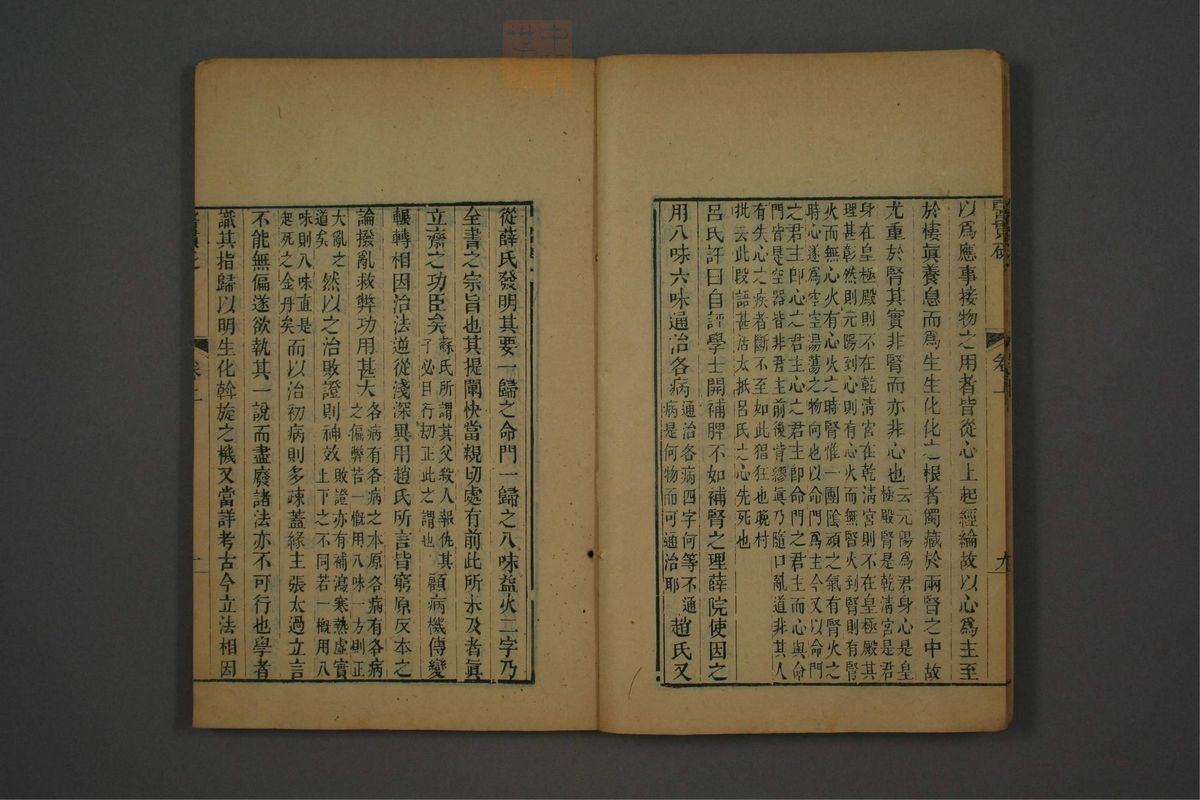 以爲應事接物之用者皆從心上起經綸故以心爲主至
於棲眞養息而爲生生化化之根者獨藏於兩腎之中故
尤重於腎其實非腎而亦非心也
云元陽爲君身心是皇
極殿腎是乾淸宮是君
身在皇極殿則不在乾淸宮在乾淸宮則不在皇極殿其
理甚彰然則元陽到心則有心火而無腎火到腎則有腎
火而無心火有心火之時腎惟一團陰頑之氣有腎火之
時心遂爲空空湯蕩之物向也以命門爲主今又以命門
之君主卽心之君主心之君主卽命門之君主而心與命
門皆是空器皆非君主前後背繆眞乃隨口亂道非其人
有失心之疾者斷不至如此猖狂也晚村
批云此段語甚活太抵呂氏之心先死也
呂氏評曰自許學士開補脾不如補腎之理薛院使因之
用八味六味通治各病
通治各病四字何等不通
病是何物而可通治耶
趙氏又
醫貫砭
卷上
九
從薛氏發明其要一歸之命門一歸之八味益火二字乃
全書之宗旨也其提闡快當親切處有前此所未及者眞
立齋之功臣矣
蘇氏所謂其父殺人報仇其
子必且行刼正此之謂也
顧病機傳變
輾轉相因治法逆從淺深異用趙氏所言皆窮原反本之
論撥亂救弊功用甚大
各病有各病之本原各病有各病
之偏弊若一槪用八味一方則正
大亂之
道矣
然以之治敗證則神效
敗證亦有補瀉寒熱虛實
上下之不同若一槪用八
味則八味直是
起死之金丹矣
而以治初病則多疎蓋緣主張太過立言
不能無偏遂欲執其一說而盡廢諸法亦不可行也學者
識其指歸以明生化斡旋之機又當詳考古今立法相因